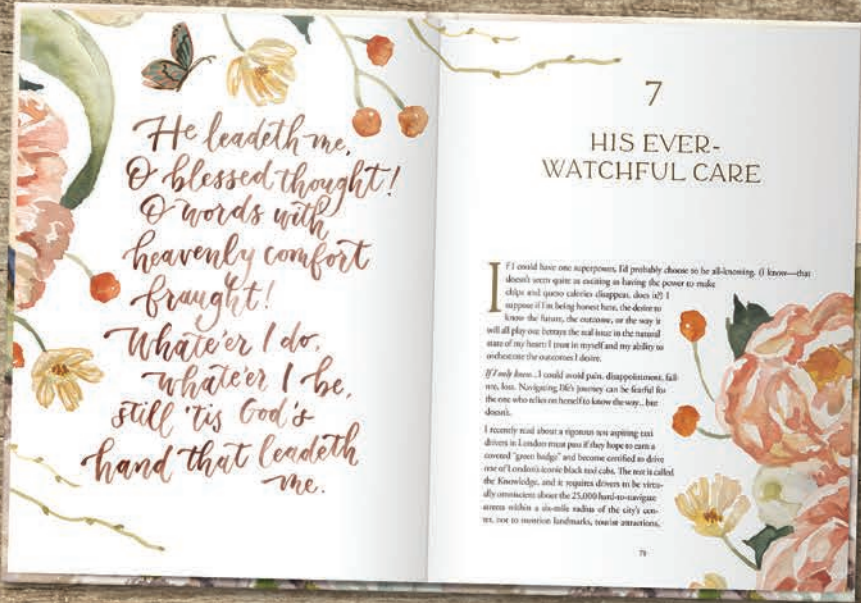 He leadeth me,
O blessed thought!
O words with
heavenly comfort
fraught!
Whate'er I do,
whate'er I be,
still 'tis God's
hand that leadeth
me.
7
HIS EVER-
WATCHFUL CARE
If I could have one superpower, I'd probably choose to be all-knowing. (I know—that
doesn't seem quite as exciting as having the power to make
chips and queso calories disappear, does it?) I
suppose if I'm being honest here, the desire to
know the future, the outcome, or the way it
will all play out betrays the real issue in the natural
state of my heart: I trust in myself and my ability to
orchestrate the outcomes I desire.
If I only knew...I could avoid pain, disappointment, fail-
ure, loss. Navigating life's journey can be fearful for
the one who relies on herself to know the way...but
doesn't.
I recently read about a rigorous test aspiring taxi
drivers in London must pass if they hope to earn a
coveted "green badge" and become certified to drive
one of London's iconic black taxi cabs. The test is called
the Knowledge, and it requires drivers to be virtu-
ally omniscient about the 25,000 hard-to-navigate
streets within a six-mile radius of the city's cen-
ter, not to mention landmarks, tourist attractions,